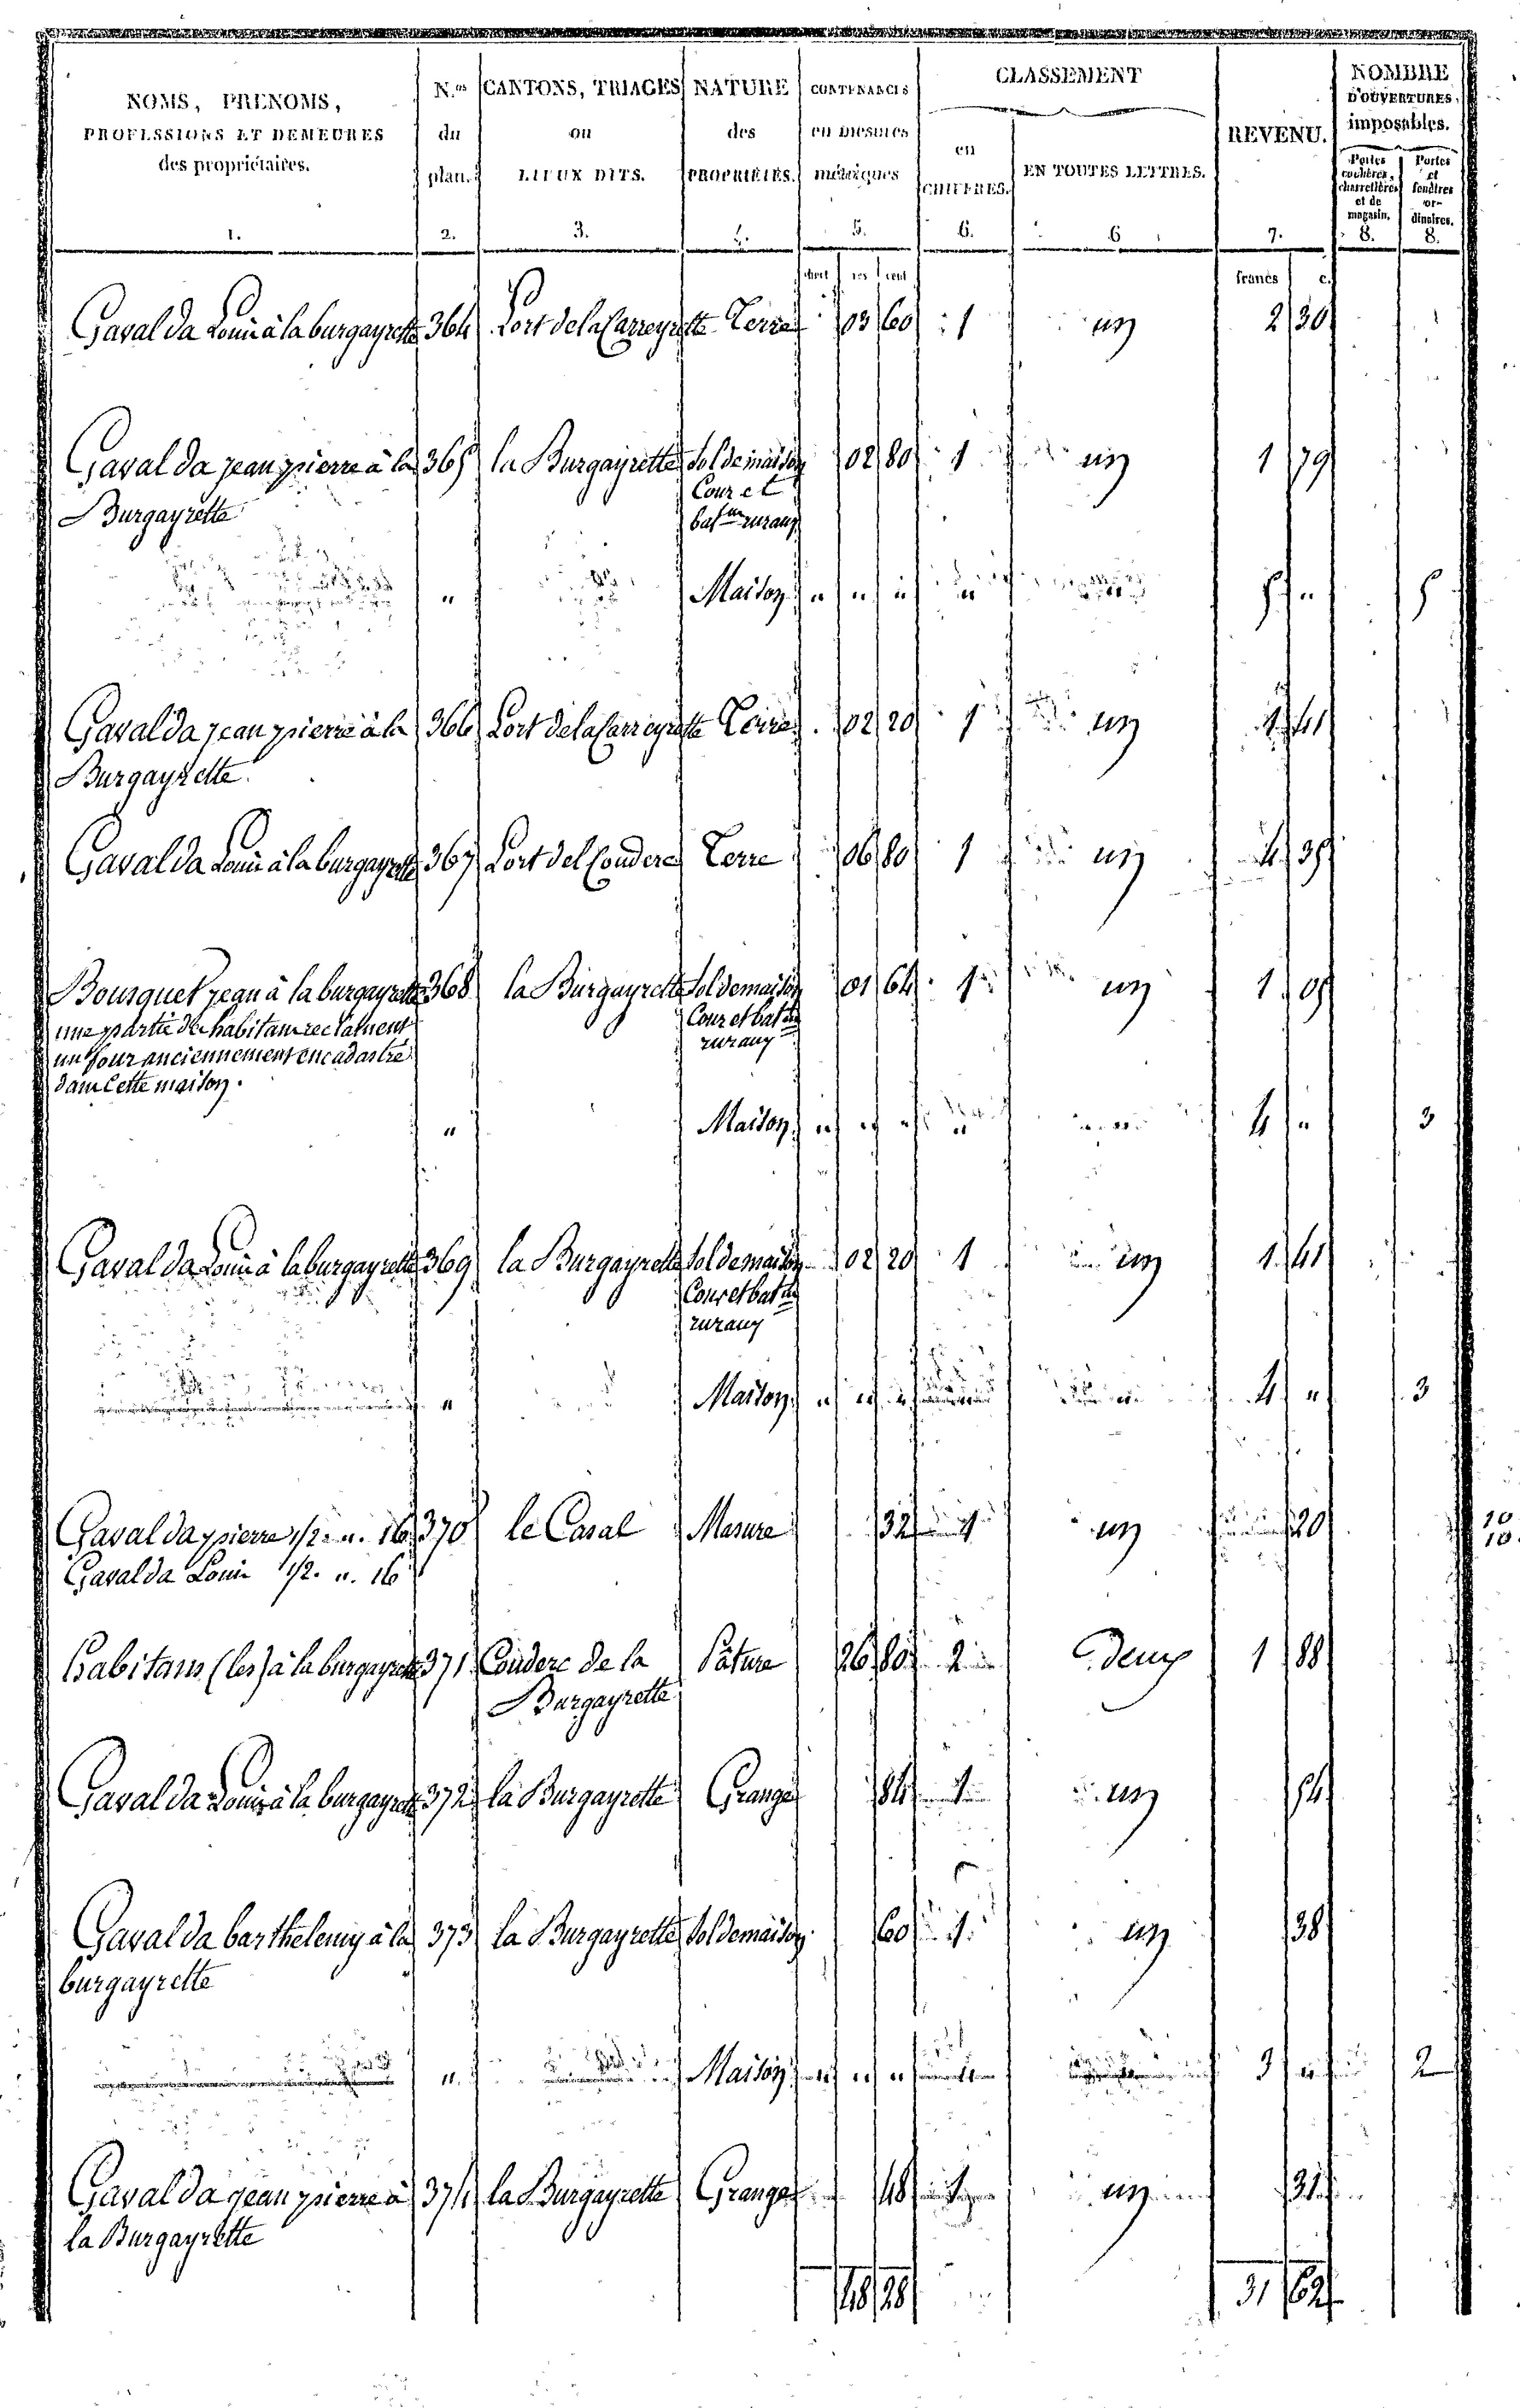 NOMS, PRENOMS, PROFESSIONS ET DEMEURES des propriétaires.
N.os du plan.
CANTONS, TRIAGES ou LIEUX DITS.
NATURE des PROPRIÉTÉS.
CONTENANCES en mesures métriques
CLASSEMENT
en CHIFFRES.
EN TOUTES LETTRES.
REVENU.
NOMBRE D'OUVERTURES imposables.
Portes cochères, charretières et de magasin.
Portes et fenêtres ordinaires.
1. 2. 3. 4. 5. 6. 6 7. 8. 8.
hect ares cent francs c.
Gavalda Louis à la burgayrette 364 Lort de la Carreyrette Terre 03 60 1 un 2 30
Gavalda jean pierre à la 365 la Burgayrette Sol de maison 02 80 1 un 1 79
Burgayrette Cour et
bat.m ruraux
" Maison " " " " 5 " 5
Gavalda jean pierre à la 366 Lort de la Carreyrette Terre 02 20 1 un 1 41
Burgayrette
Gavalda Louis à la burgayrette 367 Lort del Couderc Terre 06 80 1 un 4 35
Bousquet jean à la burgayrette 368 la Burgayrette Sol de maison 01 64 1 un 1 05
une partie des habitans reclament Cour et bat.m
un four anciennement encadastré ruraux
dans cette maison.
" Maison " " " " 4 " 3
Gavalda Louis à la burgayrette 369 la Burgayrette Sol de maison 02 20 1 un 1 41
Cour et bat.m
ruraux
" Maison " " " 4 " 3
Gavalda pierre 1/2. ". 16 370 le Casal Masure 32 1 un 20 10
Gavalda Louis 1/2. ". 16 10
habitans (les) à la burgayrette 371 Couderc de la Pâture 26 80 2 deux 1 88
Burgayrette
Gavalda Louis à la burgayrette 372 la Burgayrette Grange 84 1 un 54
Gavalda barthelemy à la 373 la Burgayrette Sol de maison 60 1 un 38
burgayrette
" Maison " " " 3 " 2
Gavalda jean pierre à 374 la Burgayrette Grange 48 1 un 31
la Burgayrette
48 28 31 62